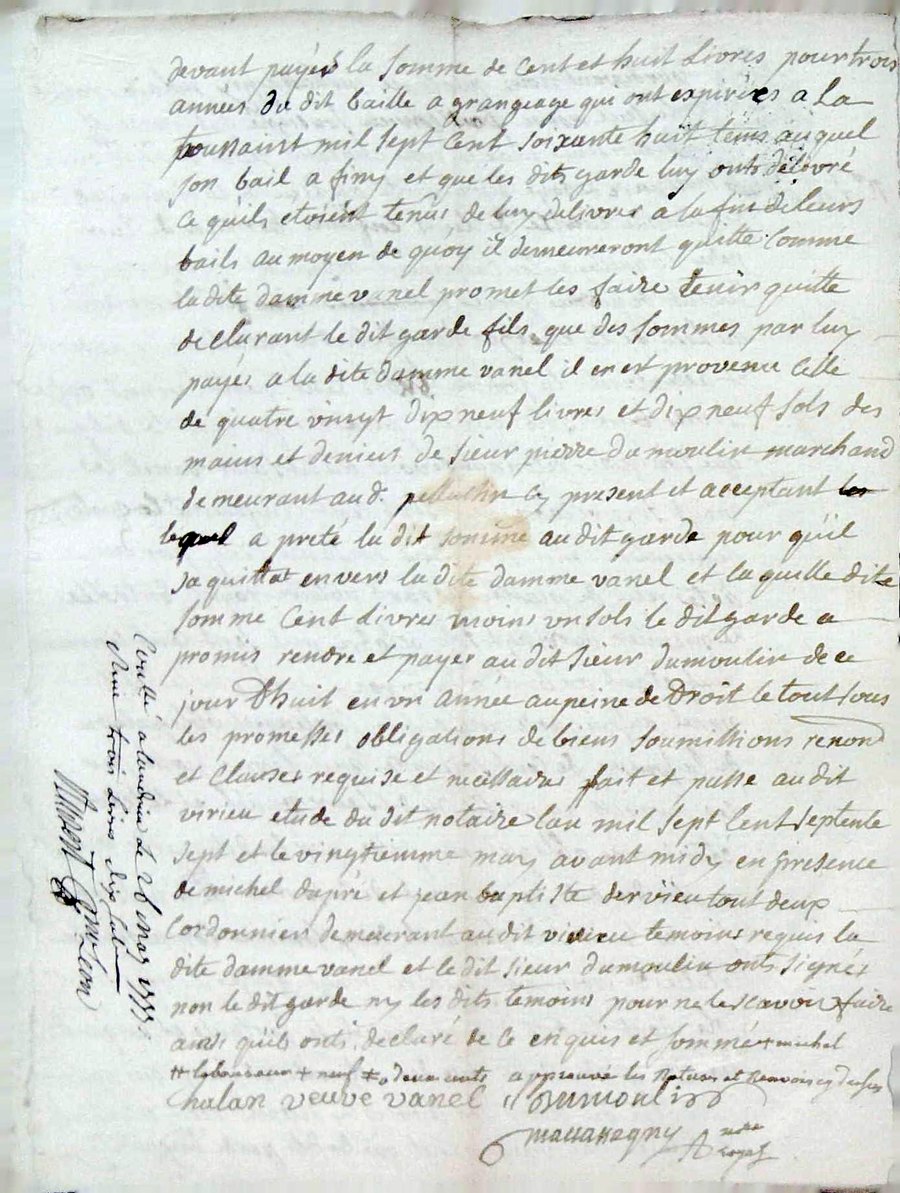 devant payés la somme de Cent et huit Livres pour trois
annees du dit baille a grangeage qui ont expirées a La
toussaint mil sept Cent soixante huit tems auquel
son bail a finy et que les dits garde luy onts délivré
Ce quils etoient tenus de luy delivrer a la fin de leurs
bails au moyen de quóy il demeureront quitte Comme
la dite damme vanel promet les faire tenir quitte
declarant le dit garde fils que des sommes par luy
payés a la dite damme vanel il en est provenu Celle
de quatre vingt dix neuf livres et dix neuf sols des
mains et deniers de sieur pierre dumoulin marchand
demeurant aud. cy present et acceptant les
lequel a preté la dit somme au dit garde pour quil
saquittat envers la dite damme vanel et la quelle dite
somme Cent Livres moins un sols le dit garde a
promis rendre et payer au dit sieur dumoulin de ce
jour Dhuit en un année au peine de Droit le tout sous
les promesses obligations de biens soumissions renond
et Clauses requise et necessaires fait et passé au dit
virieu etude du dit notaire lan mil sept Cent septente
sept et le vingtiemme may avant midy en presence
de michel dupré et jean baptiste dervieu tout deux
Cordonnier demeurant au dit virieu temoins requis la
dite damme vanel et le dit sieur dumoulin onts signés
non le dit garde ny les dits temoins pour ne le scavoir faire
ainsi quils onts declaré de ce enquis et sommé + michel
+ laboureur + neuf + deux mots approuvé les Ratures et Renvois cy dessus
Chalan veuve vanel Dumoulin
notre
royal
a Le 26 may 1777.
Reçu trois Livres dix sols